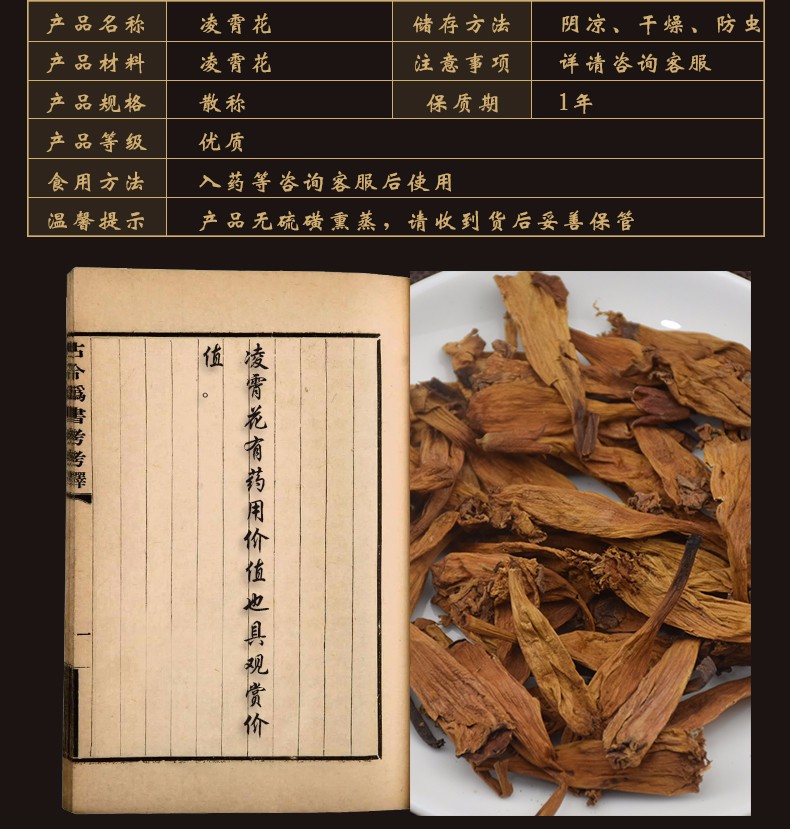 产品名称 凌霄花 储存方法 阴凉、干燥、防虫
产品材料 凌霄花 注意事项 详请咨询客服
产品规格 散称 保质期 1年
产品等级 优质
食用方法 入药等咨询客服后使用
温馨提示 产品无硫磺熏蒸，请收到货后妥善保管
凌霄花有药用价值也具观赏价
值。
古今僞書考考釋
一